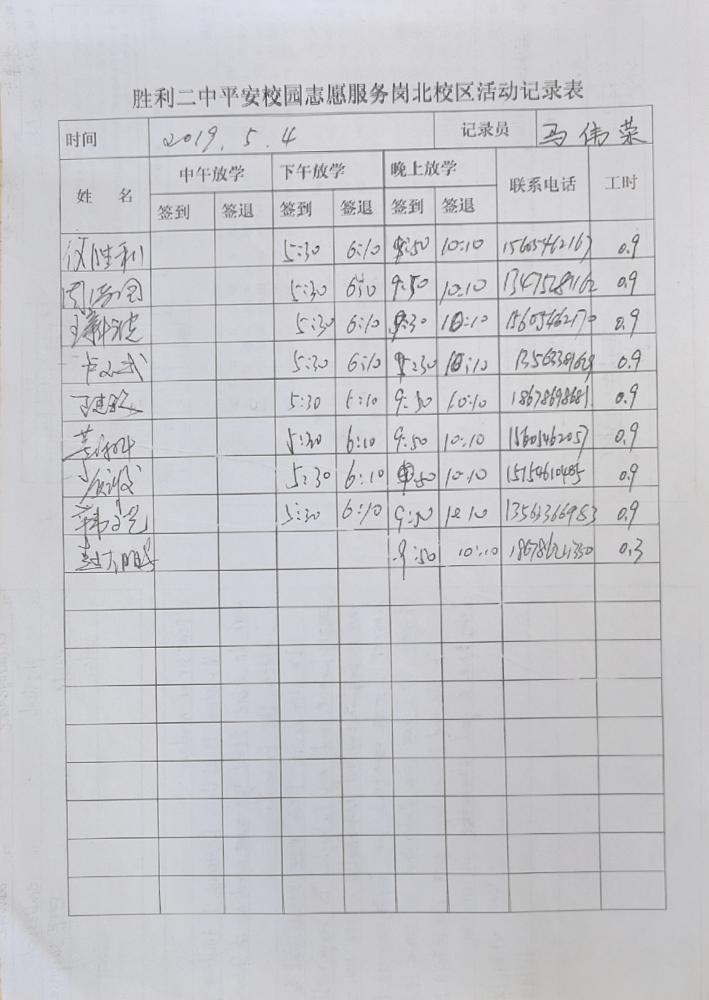 胜利二中平安校园志愿服务岗北校区活动记录表
时间 2019.5.4 记录员 马伟荣
姓名 中午放学 下午放学 晚上放学 联系电话 工时
签到 签退 签到 签退 签到 签退
胜利 5:30 6:10 9:50 10:10 15605462167 0.9
5:30 6:10 9:50 10:10 13475281162 0.9
5:30 6:10 9:30 10:10 15605462170 0.9
5:30 6:10 9:30 10:10 0.9
5:30 6:10 9:50 10:10 18678698681 0.9
5:30 6:10 9:50 10:10 15605462057 0.9
5:30 6:10 9:50 10:10 15154610485 0.9
5:30 6:10 9:50 10 10 13561366983 0.9
9:50 10:10 0.3